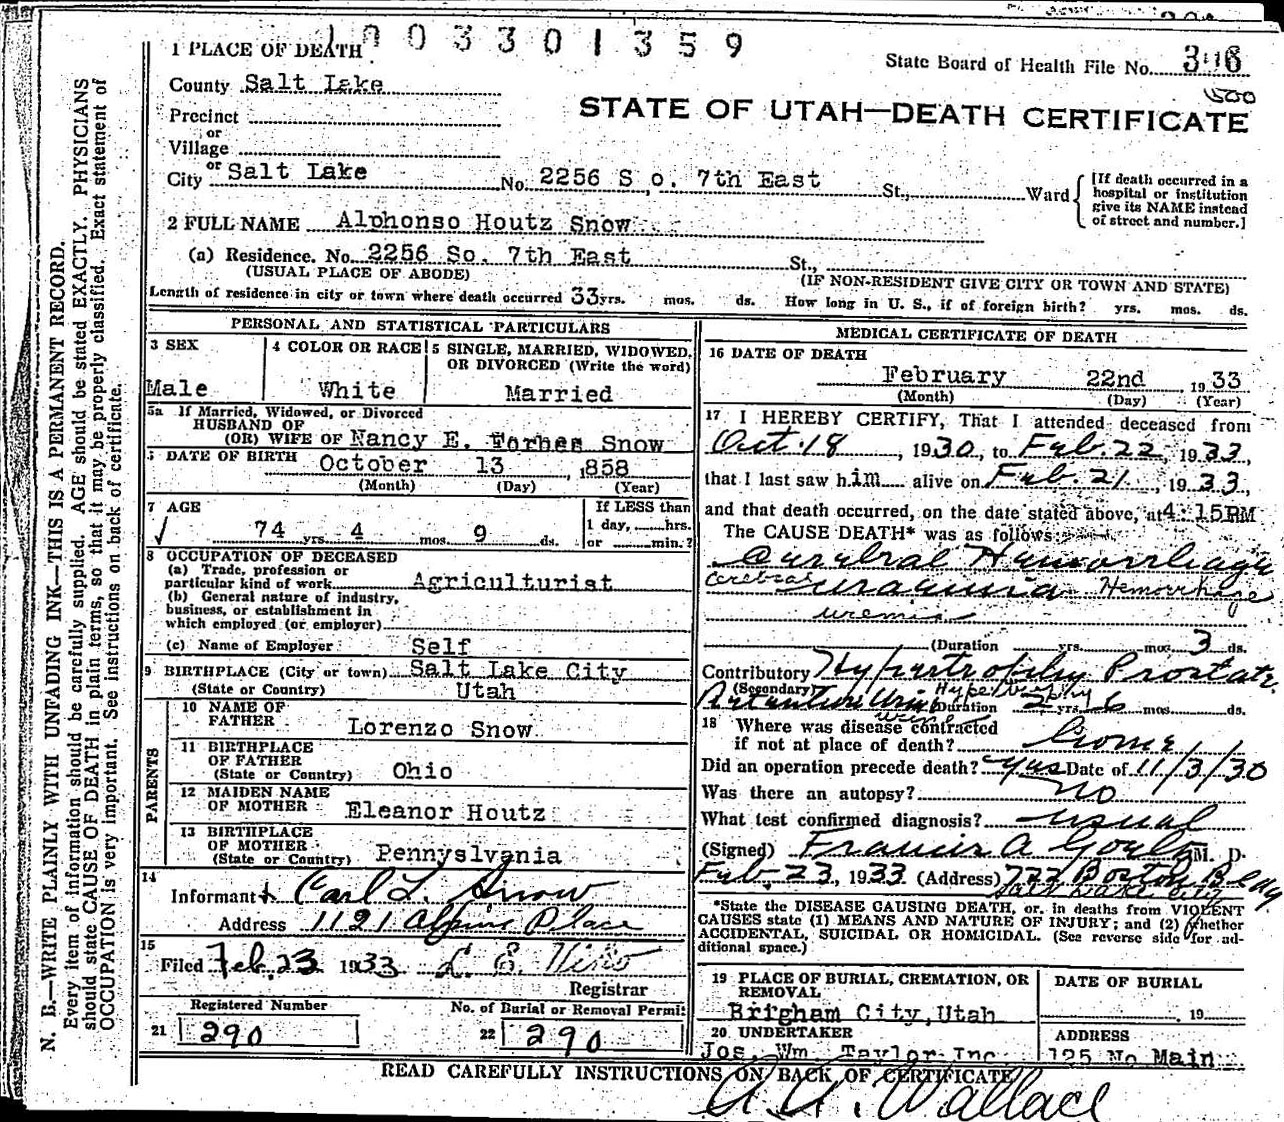 1003301359
1 PLACE OF DEATH
State Board of Health File No. 396
County Salt Lake
500
STATE OF UTAH—DEATH CERTIFICATE
Precinct
or
Village
or
City Salt Lake No. 2256 S o. 7th East St., Ward
[If death occurred in a
hospital or institution
give its NAME instead
of street and number.]
2 FULL NAME Alphonso Houtz Snow
(a) Residence. No. 2256 So. 7th East St.,
(USUAL PLACE OF ABODE) (IF NON-RESIDENT GIVE CITY OR TOWN AND STATE)
Length of residence in city or town where death occurred 33 yrs. mos. ds. How long in U. S., if of foreign birth? yrs. mos. ds.
PERSONAL AND STATISTICAL PARTICULARS
3 SEX
Male
4 COLOR OR RACE
White
5 SINGLE, MARRIED, WIDOWED,
OR DIVORCED (Write the word)
Married
5a If Married, Widowed, or Divorced
HUSBAND OF
(OR) WIFE OF Nancy E. Forbes Snow
DATE OF BIRTH October 13 ,1858
(Month) (Day) (Year)
7 AGE
74 yrs. 4 mos. 9 ds.
If LESS than
1 day, hrs.
or min.?
8 OCCUPATION OF DECEASED
(a) Trade, profession or
particular kind of work Agriculturist
(b) General nature of industry,
business, or establishment in
which employed (or employer)
(c) Name of Employer Self
9 BIRTHPLACE (City or town) Salt Lake City
(State or Country) Utah
PARENTS
10 NAME OF
FATHER Lorenzo Snow
11 BIRTHPLACE
OF FATHER
(State or Country) Ohio
12 MAIDEN NAME
OF MOTHER Eleanor Houtz
13 BIRTHPLACE
OF MOTHER
(State or Country) Pennyslvania
14
Informant Carl L. Snow
Address 1121 Alpine Place
15
Filed Feb. 23 1933
Registrar
Registered Number
21 290
No. of Burial or Removal Permit
22 290
MEDICAL CERTIFICATE OF DEATH
16 DATE OF DEATH
February 22nd 1933
(Month) (Day) (Year)
17 I HEREBY CERTIFY, That I attended deceased from
Oct. 18, 1930, to Feb. 22, 1933,
that I last saw him alive on Feb. 21, 1933,
and that death occurred, on the date stated above, at 4:15 PM
The CAUSE DEATH* was as follows:
Cerebral Hemorrhage
Cerebral uraemia Hemorrhage
uremia
(Duration yrs. mos. 3 ds.
Contributory Hypertrophy Prostate
(Secondary) Hypertrophy
Duration 2 yrs. 6 mos. ds.
18 Where was disease contracted
if not at place of death? home
Did an operation precede death? yes Date of 11/3/30
Was there an autopsy? no
What test confirmed diagnosis? usual
(Signed) Francis A Goeltz M. D.
Feb. 23, 1933 (Address) 722 Boston Bldg
Salt Lake City
*State the DISEASE CAUSING DEATH, or, in deaths from VIOLENT
CAUSES state (1) MEANS AND NATURE OF INJURY; and (2) whether
ACCIDENTAL, SUICIDAL OR HOMICIDAL. (See reverse side for ad-
ditional space.)
19 PLACE OF BURIAL, CREMATION, OR
REMOVAL
Brigham City, Utah
DATE OF BURIAL
, 19
20 UNDERTAKER
Jos. Wm. Taylor Inc
ADDRESS
125 No Main
READ CAREFULLY INSTRUCTIONS ON BACK OF CERTIFICATE
A. A. Wallace
N. B.—WRITE PLAINLY WITH UNFADING INK—THIS IS A PERMANENT RECORD.
Every item of information should be carefully supplied. AGE should be stated EXACTLY. PHYSICIANS
should state CAUSE OF DEATH in plain terms, so that it may be properly classified. Exact statement of
OCCUPATION is very important. See instructions on back of certificate.